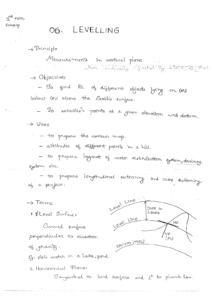 06. LEVELLING
→ Principle
Measurements in vertical plane
→ Objectives
- To find RL of different objects lying on
below or above the Earth's surface.
- To establish points at a given elevation
→ Uses
- to prepare the contour map.
- altitudes of different points in a hill.
- to prepare layout of water distribution system, drainage
system etc.
- to prepare longitudinal sectioning and cross sectioning
of a project.
→ Terms
1. Level Surface:
Curved surface
perpendicular to direction
of gravity.
Eg: Still water in a lake, pond.
2. Horizontal Plane:
Tangential to level surface and ⊥r to plumb line.
Level Line
Level Line
Horizontal